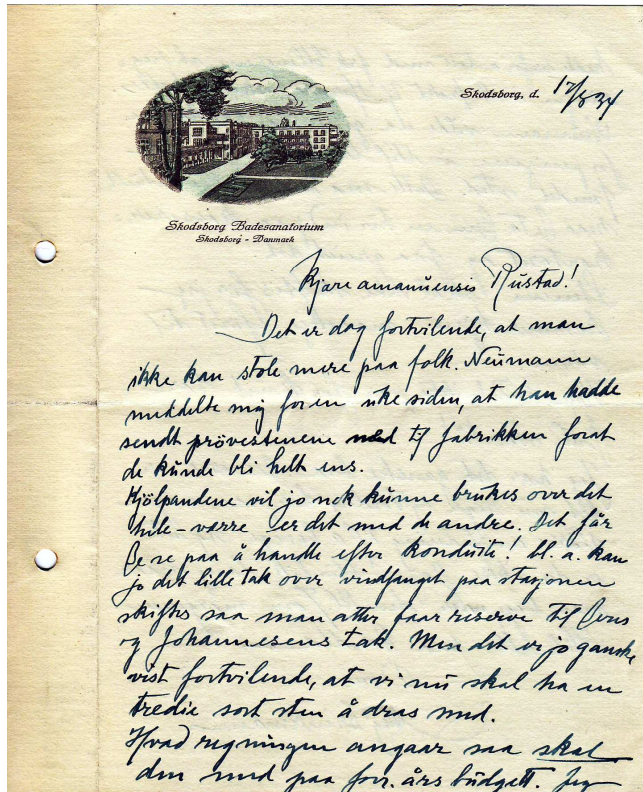 Skodsborg, d. 17/8 34
Skodsborg Badesanatorium
Skodsborg - Danmark
Kjære amanuensis Rustad!
Det er dog fortvilende, at man
ikke kan stole mere paa folk. Neumann
meddelte mig for en uke siden, at han hadde
sendt prövestenene ned til fabrikken forat
de kunde bli helt ens.
Kjölpandene vil jo nok kunne brukes over det
hele - værre er det med de andre. Det får
De se paa å handle efter konduite! bl. a. kan
jo det lille tak over vindfanget paa stasjonen
skiftes saa man atter faar reserve til Deres
og Johannesens tak. Men det er jo ganske
vist fortvilende, at vi nu skal ha en
tredie sort sten å dras med.
Hvad regningen angaar saa skal
den med paa forr. års budgett. Jeg